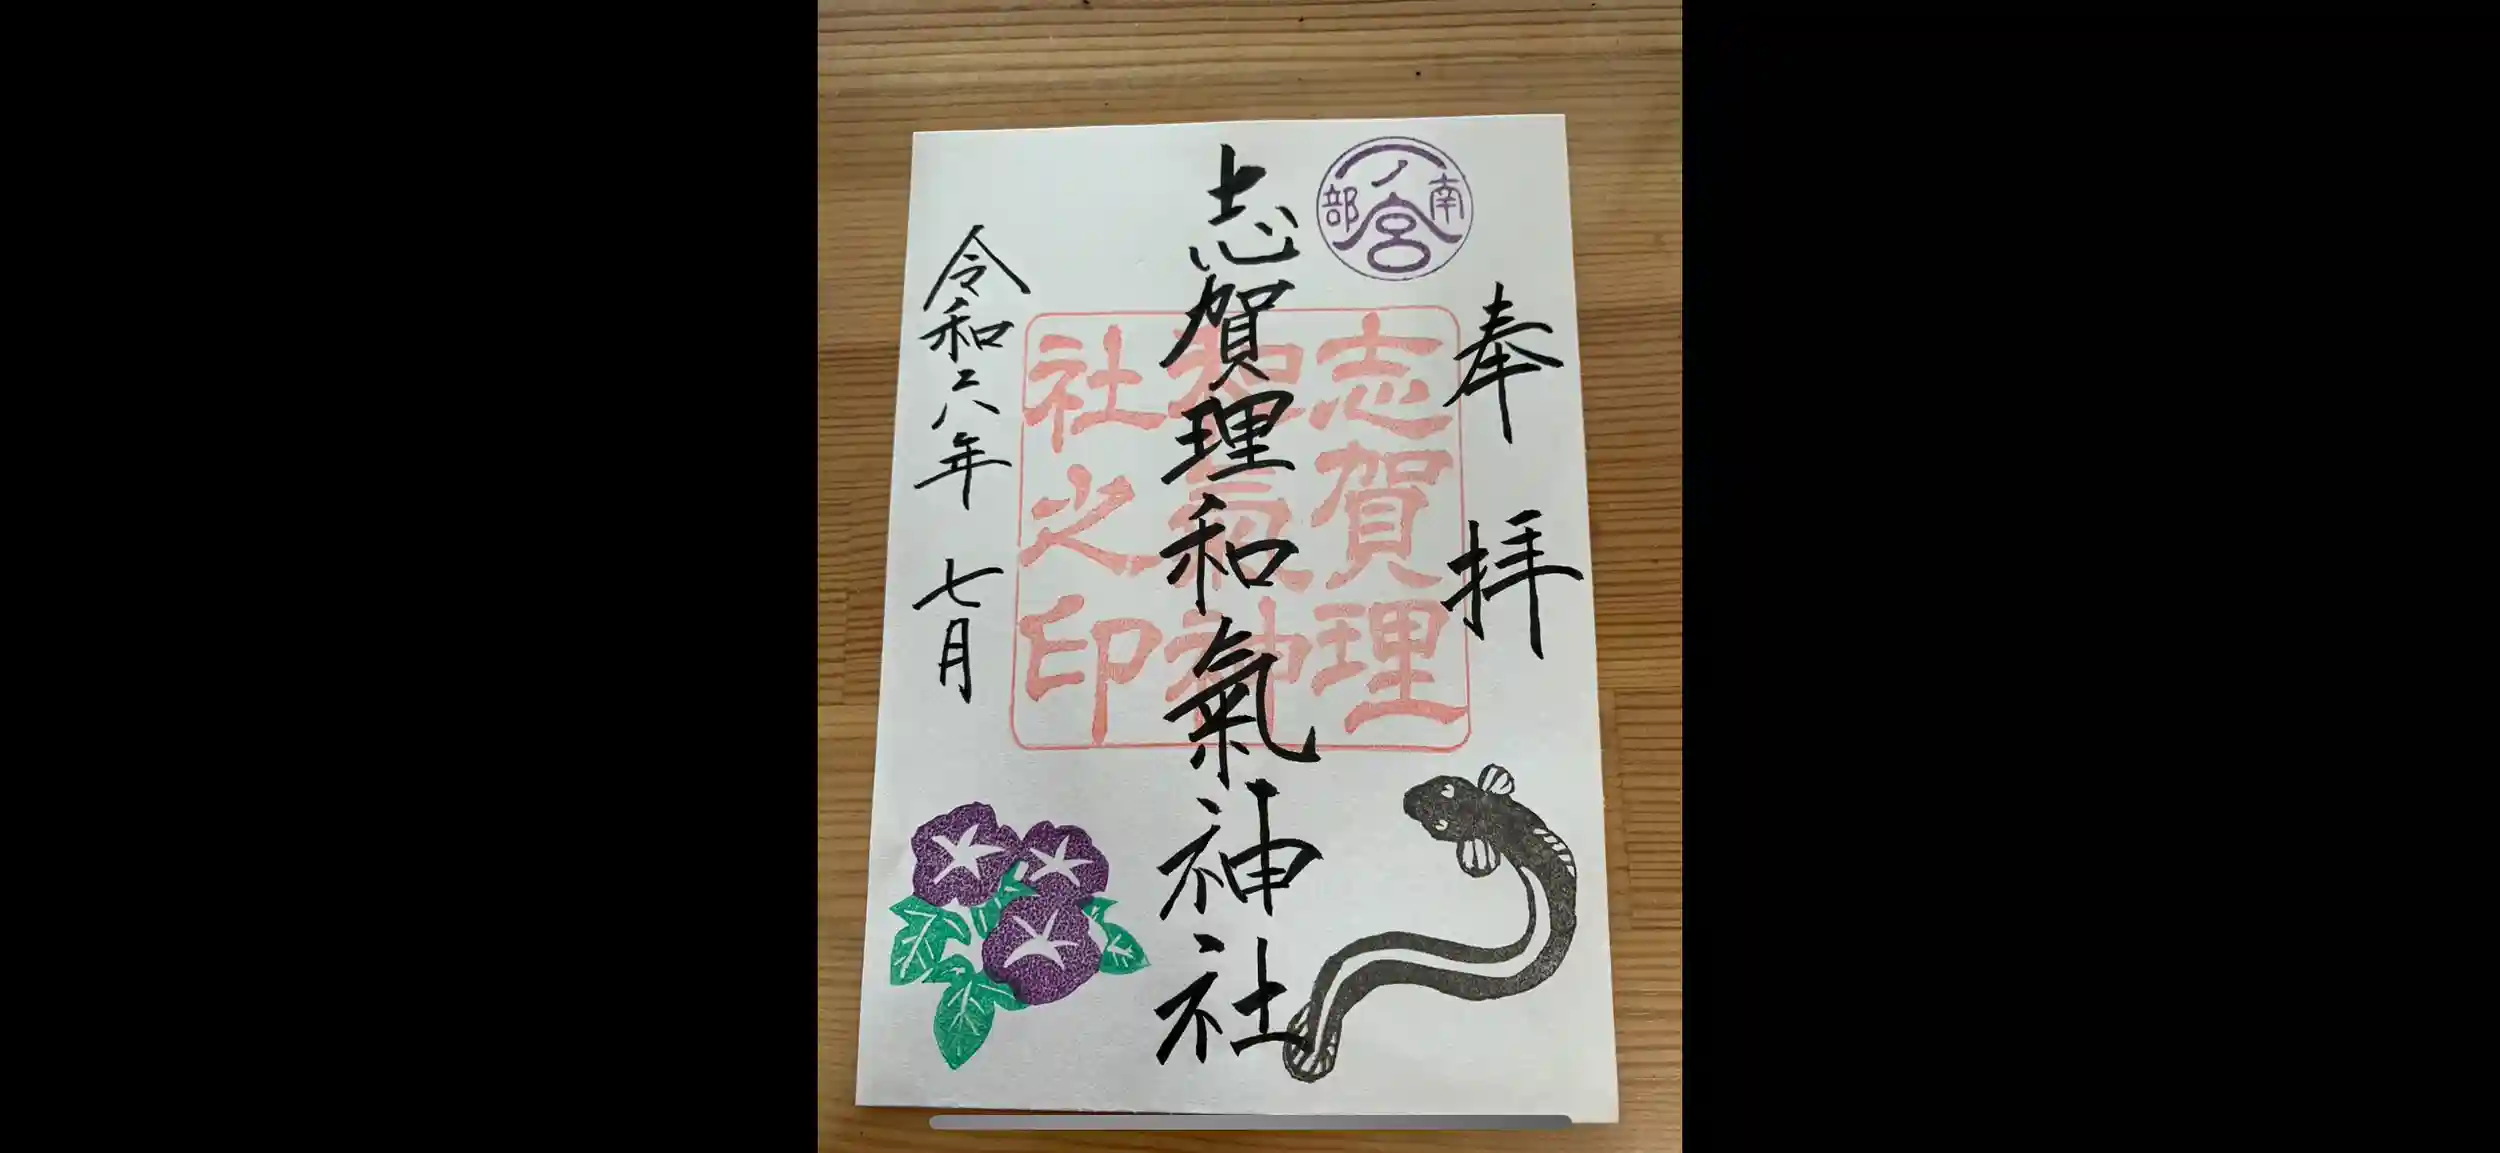 南部一ノ宮
奉拝
志賀理和氣神社
志賀理
和氣神
社之印
令和六年 七月